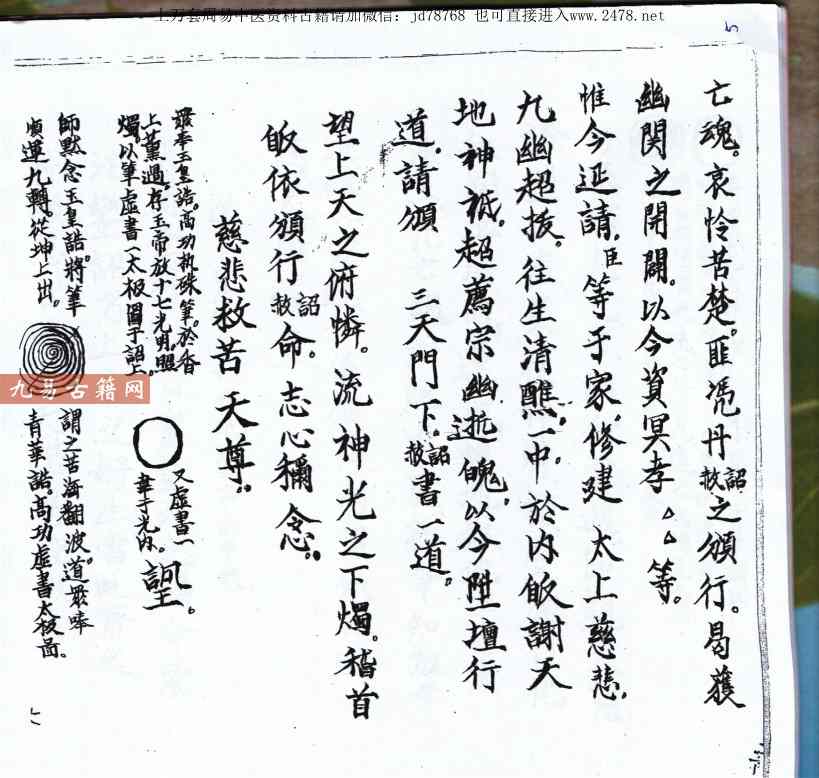 上万套周易中医资料古籍请加微信：jd78768 也可直接进入www.2478.net
5
亡魂。哀怜苦楚。匪凭丹詔赦之頒行。曷獲
幽関之開闢。以今資冥孝△△等。
惟今延請臣等于家。修建 太上慈悲
九幽超拔。往生清醮一中。於内皈謝天
地神祗。超薦宗幽 魄以今陞壇行
道。請頒 三天門下。詔赦書一道。
望上天之俯憐。流神光之下燭。稽首
皈依頒行詔赦命。志心稱念。
慈悲救苦天尊。
眾奉玉皇誥。高功執硃筆。於香
上薰過。存玉帝放十七光明。照
燭以筆虛書太极圖于詔上。
又虛書一
字于光内。
師默念玉皇誥。將筆
順運九轉。從坤上出。
謂之苦海翻波。道眾奉
青華誥。高功虛書太极畾。
九易古籍网